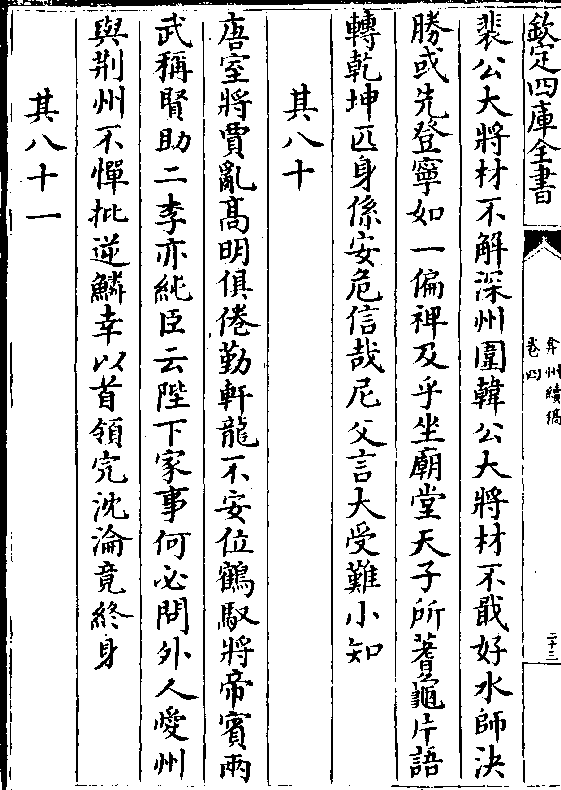 欽定四庫全書
弇州續稿
卷四
二十三
裴公大將材不解深州圍韓公大將材不戢好水師決
勝或先登寧如一偏裨及乎坐廟堂天子所蓍龜片語
轉乾坤匹身係安危信哉尼父言大受難小知
其八十
唐室將賈亂髙明俱倦勤軒龍不安位鶴馭將帝賓兩
武稱賢助二李亦純臣云陛下家事何必問外人愛州
與荆州不憚批逆鱗幸以首領完沈淪竟終身
其八十一